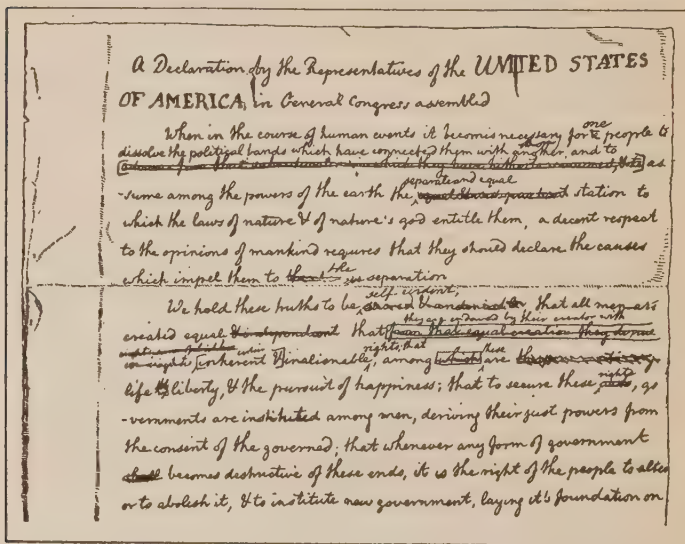 A Declaration by the Representatives of the UNITED STATES
OF AMERICA, in General Congress assembled
When in the course of human events it becomes necessary for one people to
dissolve the political bands which have connected them with another, and to
as
-sume among the powers of the earth the separate and equal station to
which the laws of nature & of nature's god entitle them, a decent respect
to the opinions of mankind requires that they should declare the causes
which impel them to the separation
We hold these truths to be self-evident, that all men are
created equal that they are endowed by their creator with
inherent & inalienable rights, that among these are
life & liberty, & the pursuit of happiness; that to secure these rights, go
-vernments are instituted among men, deriving their just powers from
the consent of the governed; that whenever any form of government
becomes destructive of these ends, it is the right of the people to alter
or to abolish it, & to institute new government, laying it's foundation on